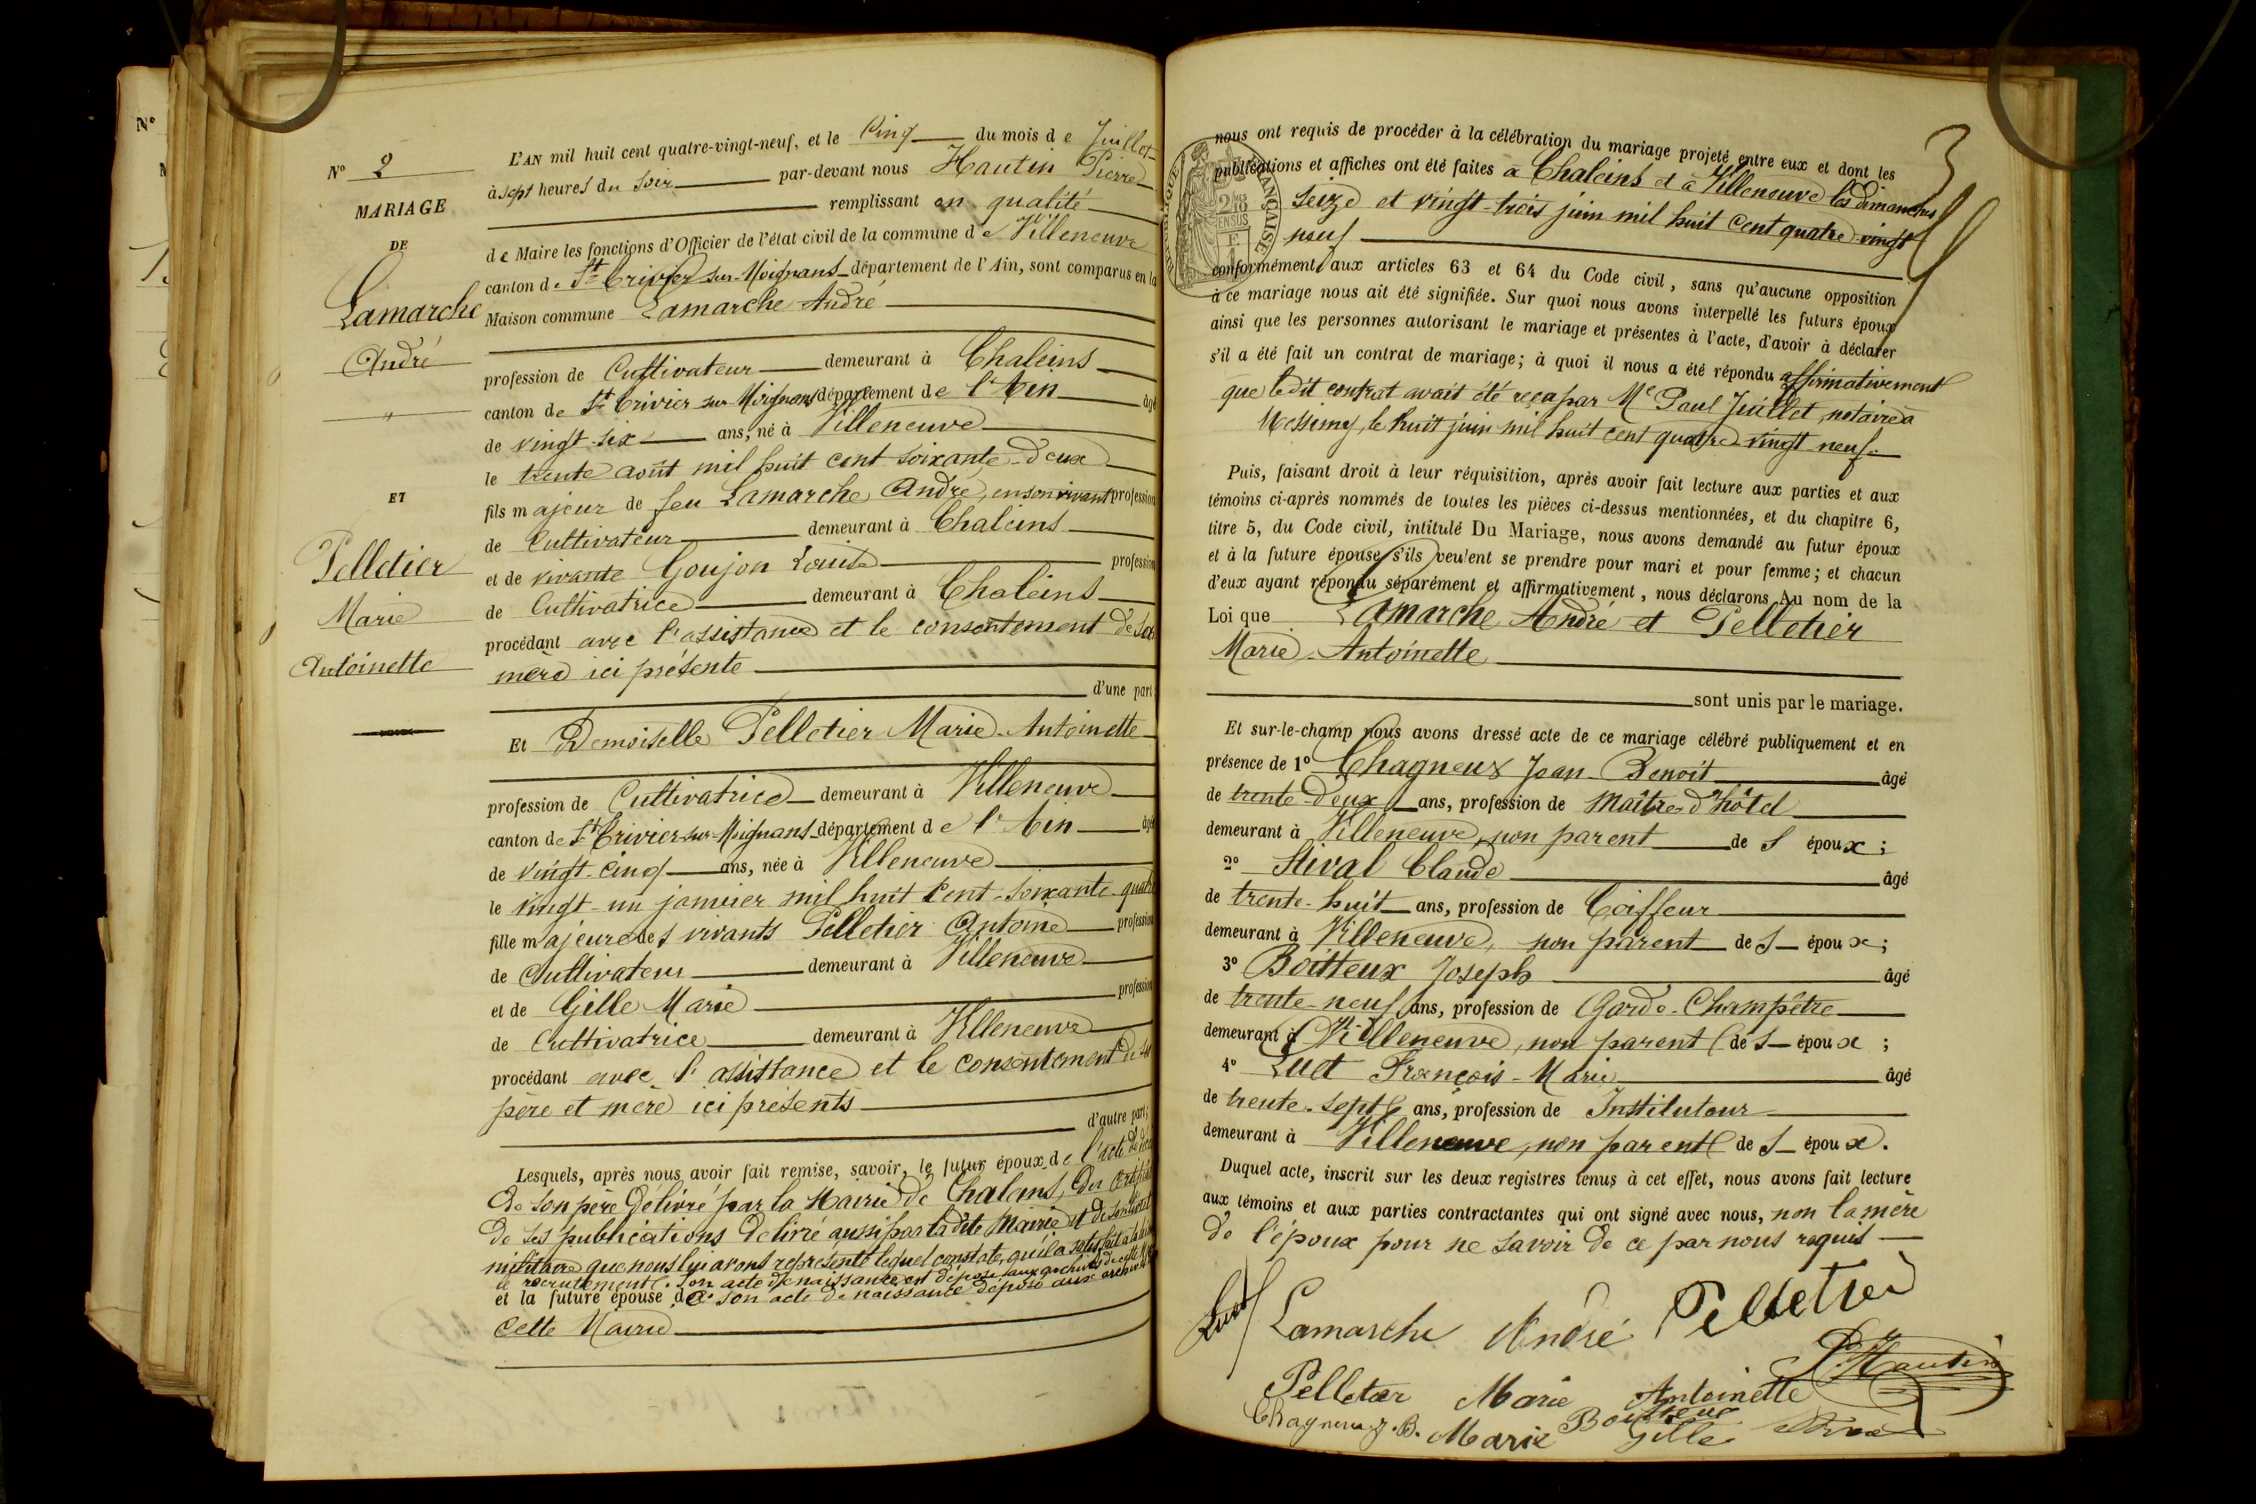 N° 2
MARIAGE
DE
Lamarche
André
"
ET
Pelletier
Marie
Antoinette
L'AN mil huit cent quatre-vingt-neuf, et le Cinq du mois de Juillet
à sept heures du soir par-devant nous Hautin Pierre
remplissant en qualité
de Maire les fonctions d'Officier de l'état civil de la commune de Villeneuve
canton de St Trivier sur Moignans département de l'Ain, sont comparus en la
Maison commune Lamarche André
profession de Cultivateur demeurant à Chaleins
canton de St Trivier sur Moignans département de l'Ain âgé
de vingt-six ans, né à Villeneuve
le trente août mil huit cent soixante-deux
fils majeur de feu Lamarche André, en son vivant profession
de Cultivateur demeurant à Chaleins
et de vivante Goujon Louise profession
de Cultivatrice demeurant à Chaleins
procédant avec l'assistance et le consentement de sa
mère ici présente
d'une part
Et Demoiselle Pelletier Marie-Antoinette
profession de Cultivatrice demeurant à Villeneuve
canton de St Trivier sur Moignans département de l'Ain âgée
de vingt-cinq ans, née à Villeneuve
le vingt-un janvier mil huit cent-soixante-quatre
fille majeure des vivants Pelletier Antoine profession
de Cultivateur demeurant à Villeneuve
et de Gille Marie profession
de Cultivatrice demeurant à Villeneuve
procédant avec l'assistance et le consentement de ses
père et mère ici présents
d'autre part;
Lesquels, après nous avoir fait remise, savoir, le futur époux de l'acte de décès
de son père délivré par la Mairie de Chaleins, du certificat
de ses publications délivré aussi par la dite Mairie et de son livret
militaire que nous lui avons représenté lequel constate qu'il a satisfait à la loi
de recrutement. Son acte de naissance est déposé aux archives de cette Mairie
et la future épouse de son acte de naissance déposé aux archives de
cette Mairie
3
RÉPUBLIQUE FRANÇAISE
nous ont requis de procéder à la célébration du mariage projeté entre eux et dont les
publications et affiches ont été faites à Chaleins et à Villeneuve les dimanches
seize et vingt-trois juin mil huit cent quatre-vingt
neuf
conformément aux articles 63 et 64 du Code civil, sans qu'aucune opposition
à ce mariage nous ait été signifiée. Sur quoi nous avons interpellé les futurs époux
ainsi que les personnes autorisant le mariage et présentes à l'acte, d'avoir à déclarer
s'il a été fait un contrat de mariage; à quoi il nous a été répondu affirmativement
que ledit contrat avait été reçu par Me Paul Juillet, notaire à
Messimy, le huit juin mil huit cent quatre-vingt-neuf.
Puis, faisant droit à leur réquisition, après avoir fait lecture aux parties et aux
témoins ci-après nommés de toutes les pièces ci-dessus mentionnées, et du chapitre 6,
titre 5, du Code civil, intitulé Du Mariage, nous avons demandé au futur époux
et à la future épouse s'ils veulent se prendre pour mari et pour femme; et chacun
d'eux ayant répondu séparément et affirmativement, nous déclarons Au nom de la
Loi que Lamarche André et Pelletier
Marie-Antoinette
sont unis par le mariage.
Et sur-le-champ nous avons dressé acte de ce mariage célébré publiquement et en
présence de 1° Chagneux Jean-Benoit âgé
de trente-deux ans, profession de Maître d'hôtel
demeurant à Villeneuve, non parent des époux;
2° Stival Claude âgé
de trente-huit ans, profession de Coiffeur
demeurant à Villeneuve, non parent des époux;
3° Boitteux Joseph âgé
de trente-neuf ans, profession de Garde-Champêtre
demeurant à Villeneuve, non parent des époux;
4° Luet François-Marie âgé
de trente-sept ans, profession de Instituteur
demeurant à Villeneuve, non parent des époux.
Duquel acte, inscrit sur les deux registres tenus à cet effet, nous avons fait lecture
aux témoins et aux parties contractantes qui ont signé avec nous, non la mère
de l'époux pour ne savoir de ce par nous requis
Luet Lamarche André Pelletier
P. Hautin
Pelletier Marie Antoinette
Chagneux J. B. Marie Gille Boitteux